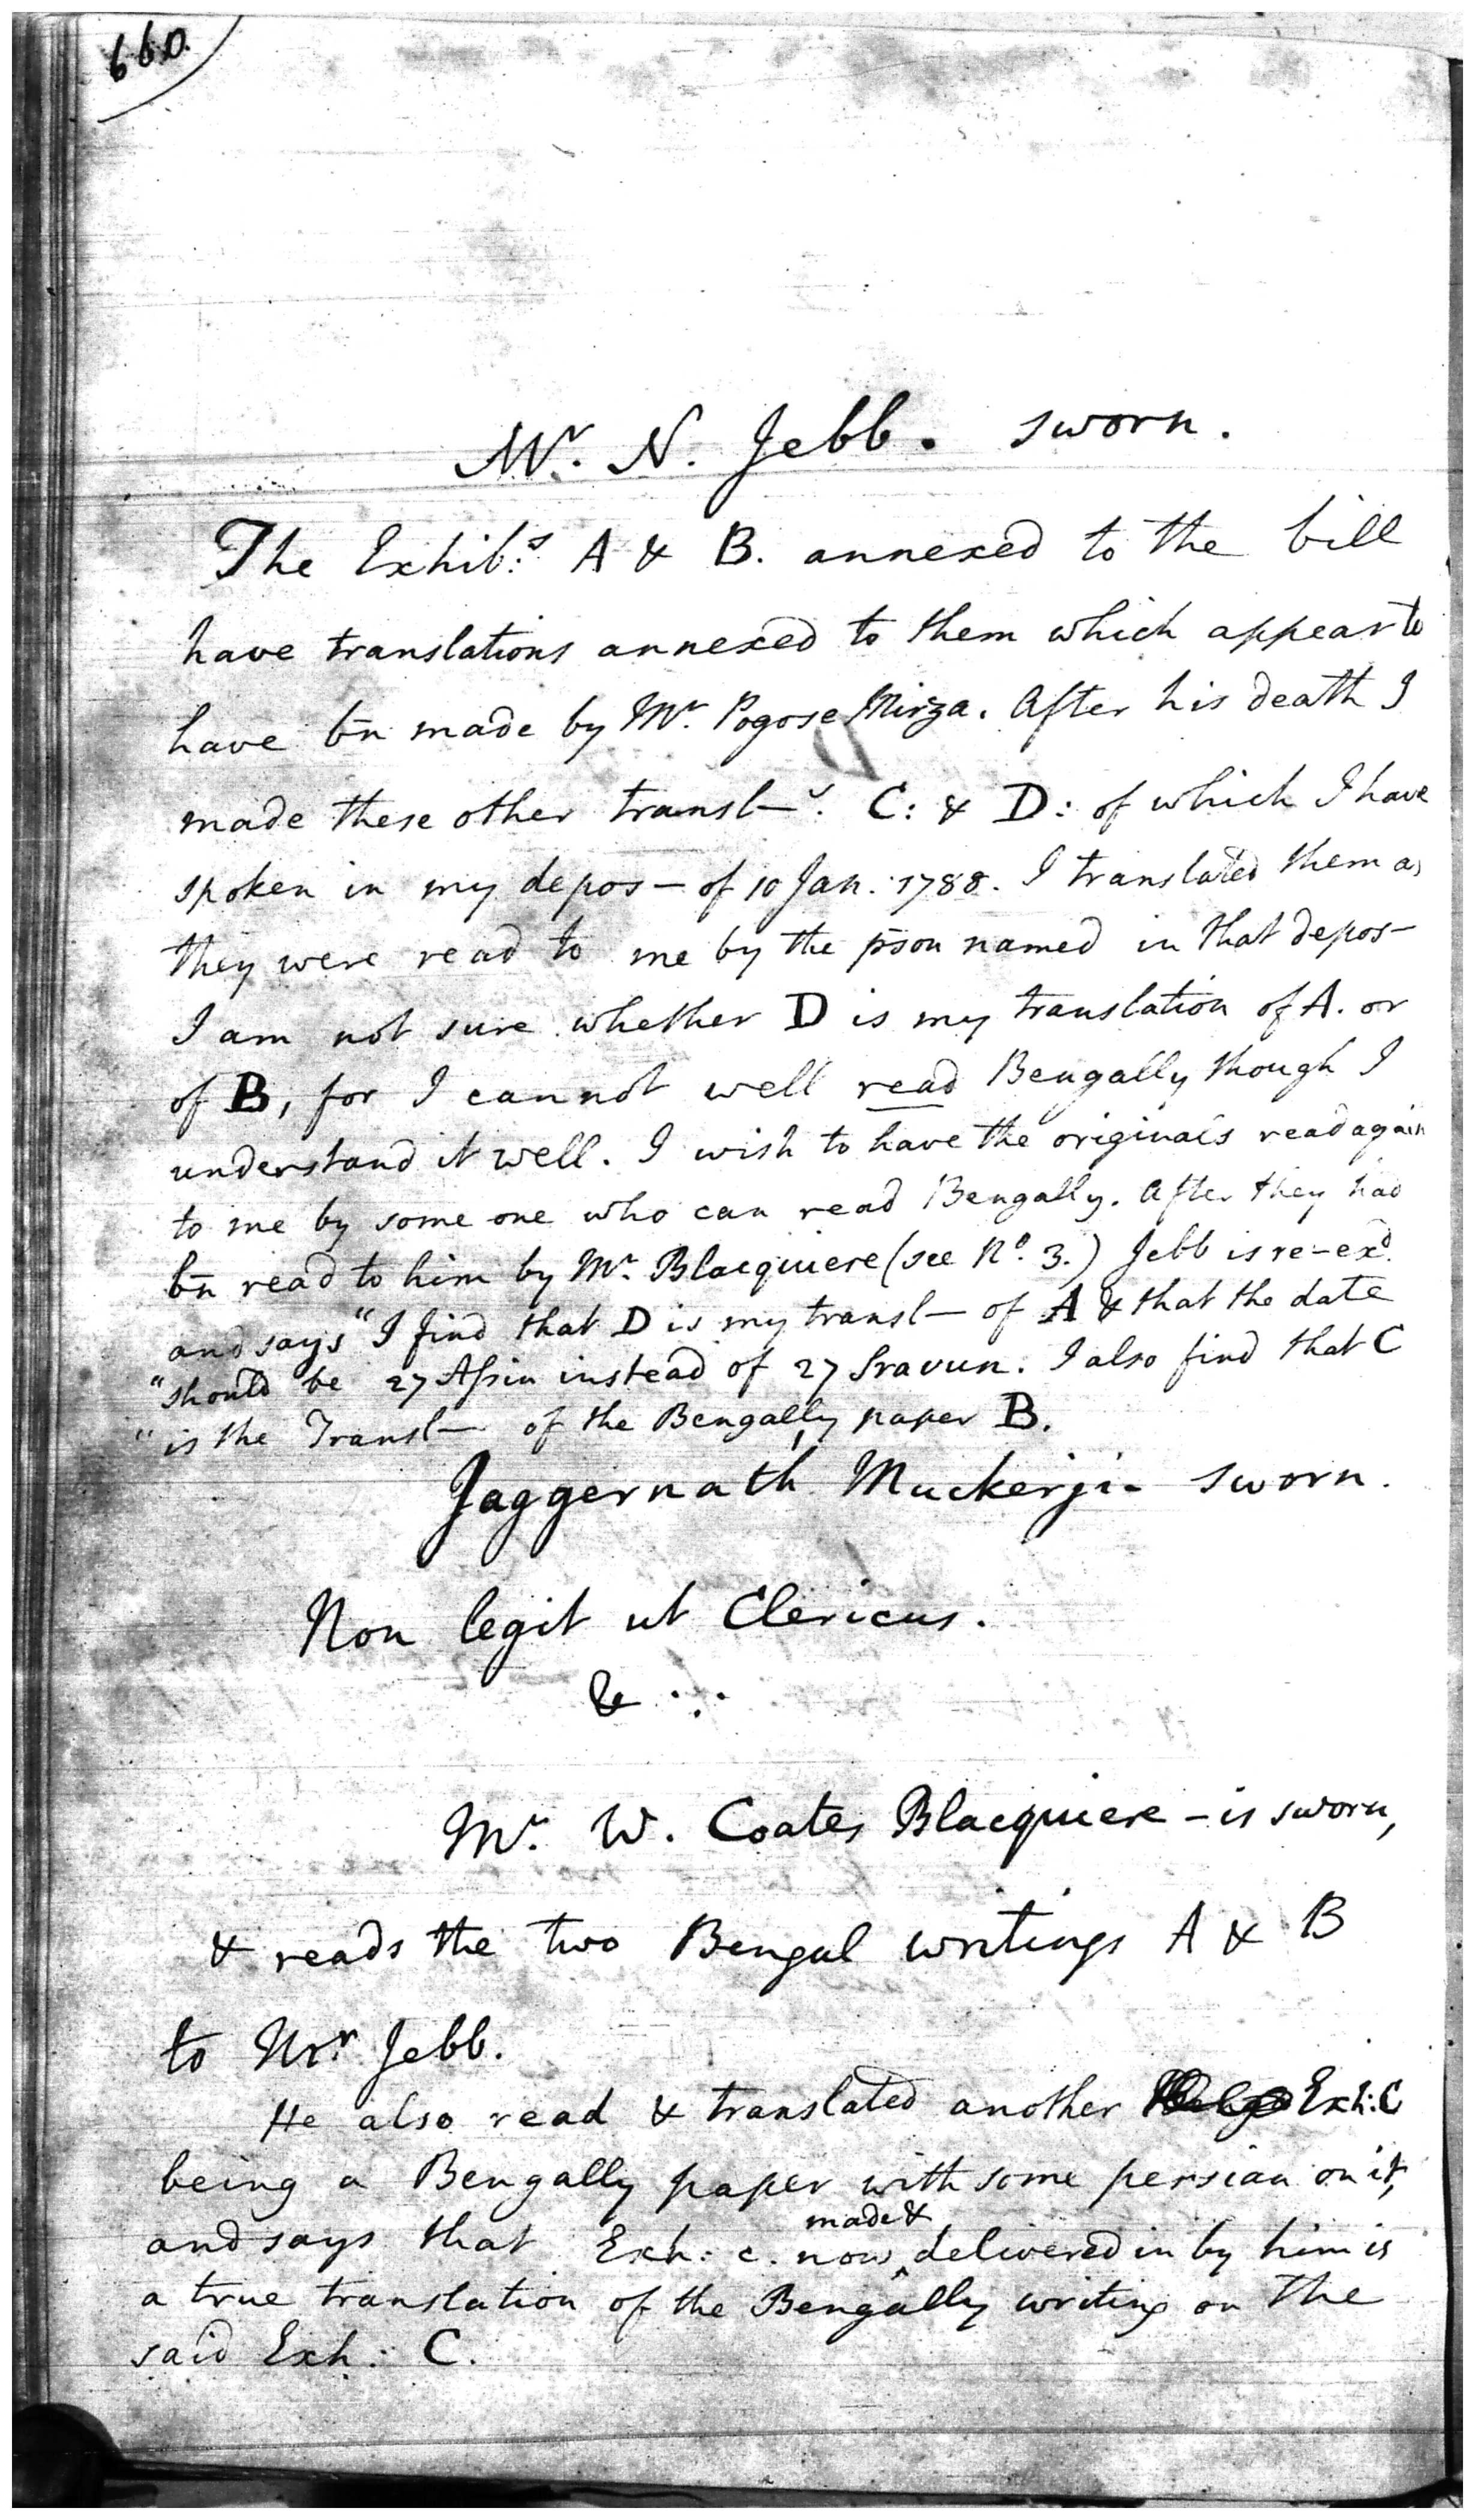 660.
Mr. N. Jebb. sworn.
The Exhib:s A & B. annexed to the bill
have translations annexed to them which appear to
have bn made by Mr. Pogose Mirza. After his death I
made these other transl—s. C: & D: of which I have
spoken in my depos— of 10 Jan: 1788. I translated them as
they were read to me by the pson named in that depos—
I am not sure whether D is my translation of A. or
of B, for I cannot well read Bengally though I
understand it well. I wish to have the originals read again
to me by some one who can read Bengally. After they had
bn read to him by Mr. Blacquiere (see No. 3.) Jebb is re-exd.
and says "I find that D is my transl— of A & that the date
"should be 27 Assin instead of 27 Sravun. I also find that C
"is the Transl— of the Bengally paper B.
Jaggernath Muckerji- sworn.
Non legit ut Clericus.
& ∴
Mr. W. Coates Blacquiere - is sworn,
& reads the two Bengal writings A & B
to Mr. Jebb.
He also read & translated another Exh: C
being a Bengally paper with some persian on it,
made &
and says that Exh: c. now ^ delivered in by him is
a true translation of the Bengally writing on the
said Exh: C.